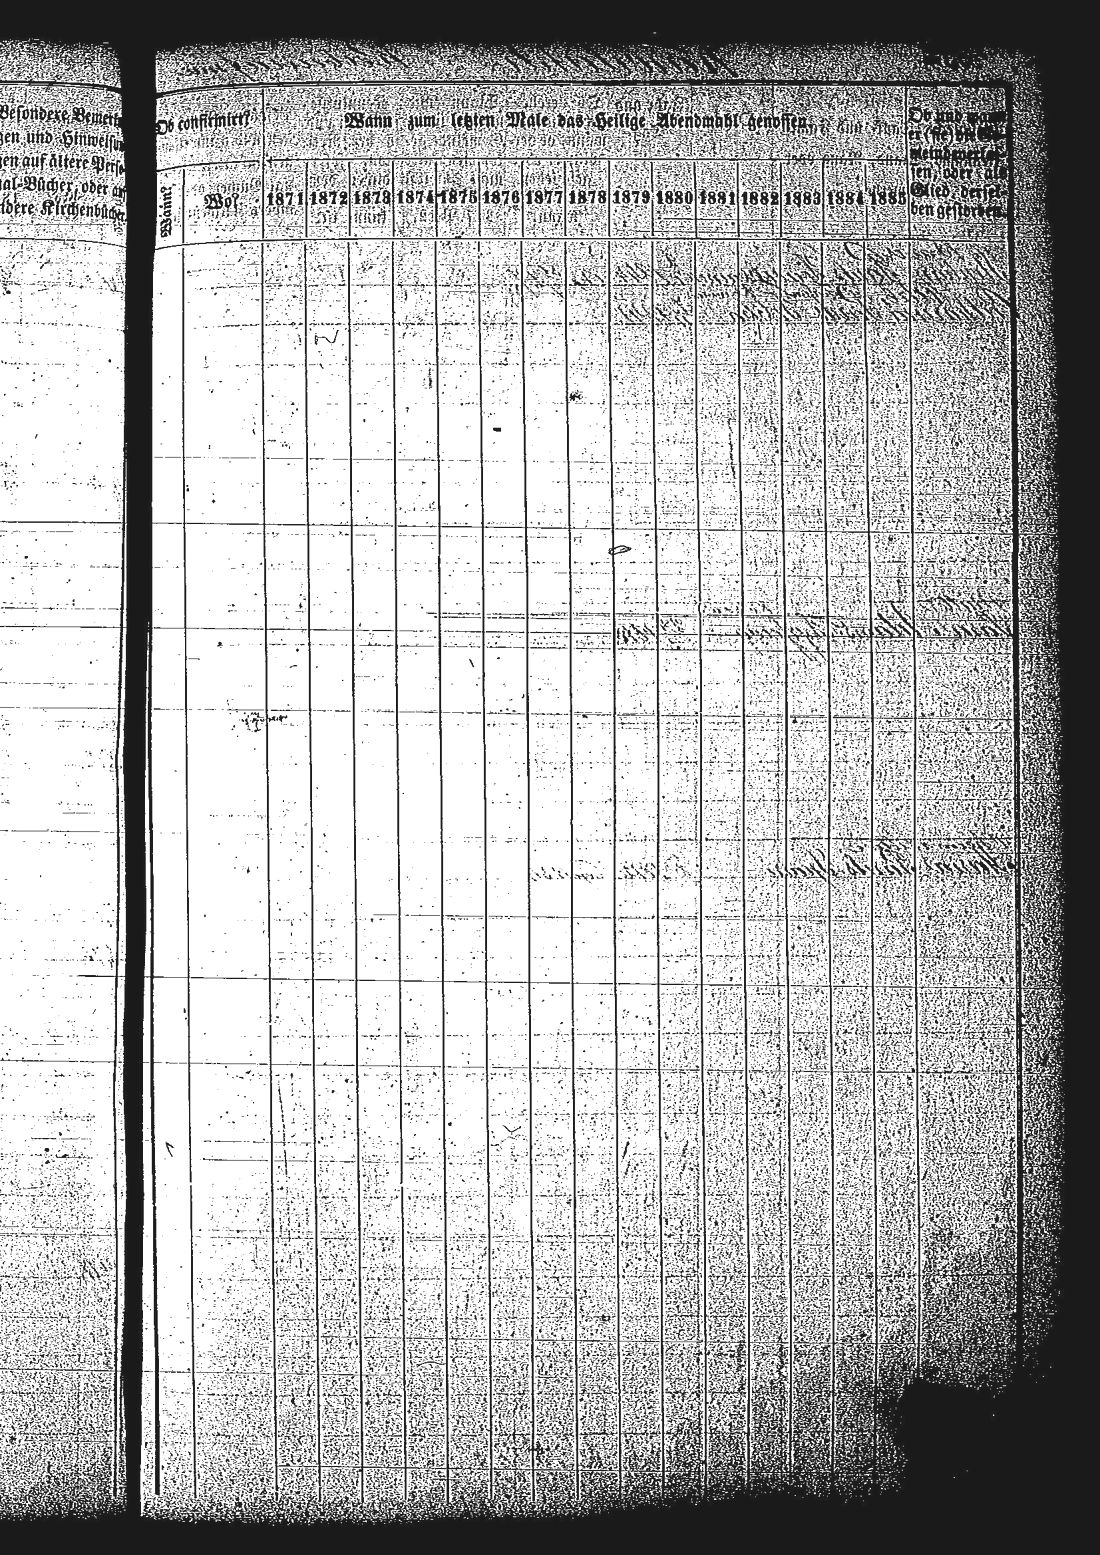 Besondere Bemerkun
gen und Hinweisun
gen auf ältere Perso
nal-Bücher, oder auf
andere Kirchenbücher.
Ob confirmirt?
Wann?
Wo?
Wann zum letzten Male das Heilige Abendmahl genossen.
1871 1872 1873 1874 1875 1876 1877 1878 1879 1880 1881 1882 1883 1884 1885
Ob und wann
er (sie) die Ge-
meinde verlas-
sen, oder als
Glied dersel-
ben gestorben.